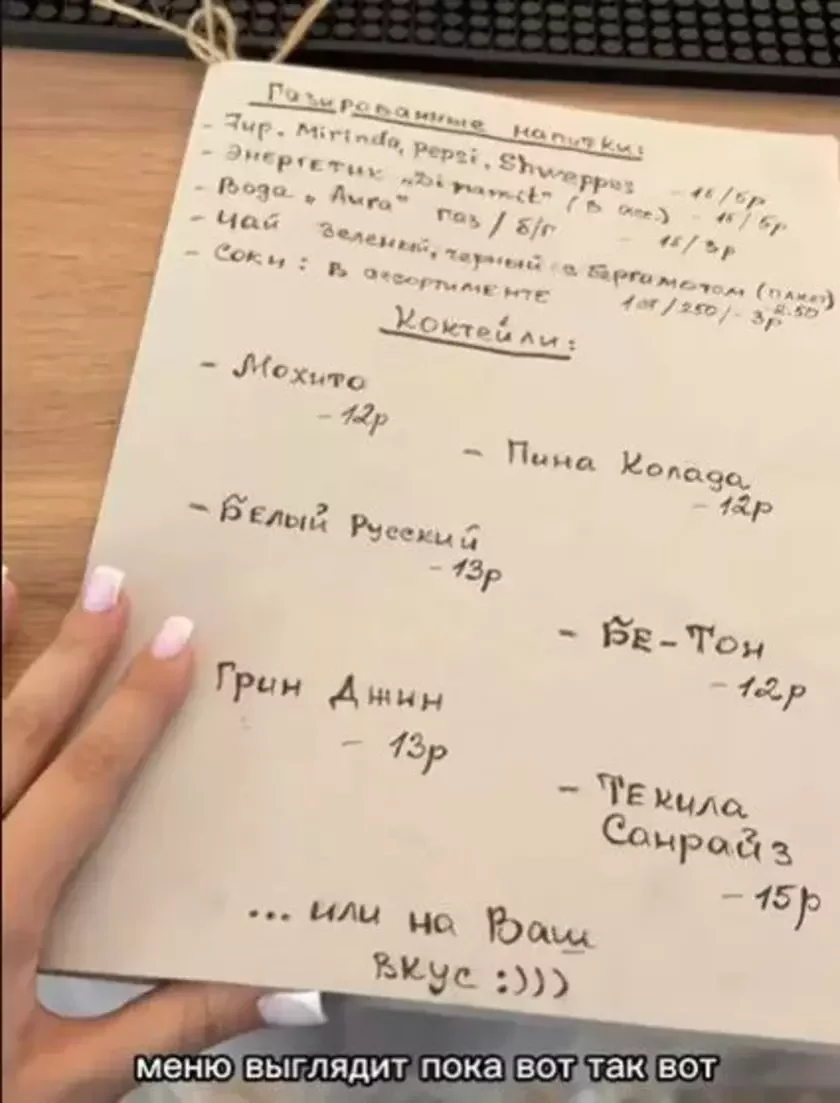 Газированные напитки:
- 7up. Mirinda, pepsi. Shweppes - 1б/5р
- Энергетик „Dinamit" (в асс.) - 1б/5р
- Вода „Aura" газ / б/г - 1б/3р
- Чай зеленый, черный с бергамотом (пакет) - 2.50
- Соки: в ассортименте /250/- 3р
Коктейли:
- Мохито
- 12р
- Пина Колада
- 12р
- Белый Русский
- 13р
- Бе-Тон
- 12р
Грин Джин
- 13р
- Текила
Санрайз
- 15р
... или на Ваш
вкус :)))
меню выглядит пока вот так вот